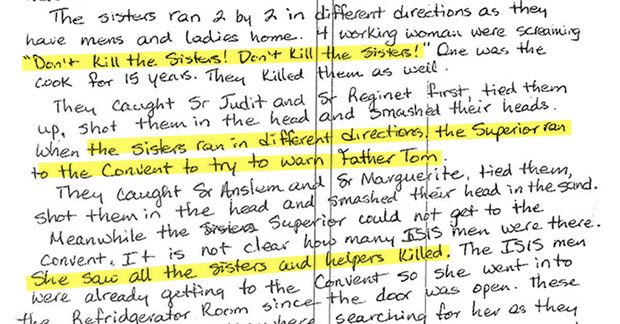 The sisters ran 2 by 2 in different directions as they
have mens and ladies home. 4 working woman were screaming
"Don't Kill the Sisters! Don't Kill the Sisters!" One was the
cook for 15 years. They Killed them as well.
They caught Sr Judit and Sr Reginet first, tied them
up, shot them in the head and smashed their heads.
When the Sisters ran in different directions, the Superior ran
to the Convent to try to warn Father Tom.
They caught Sr Anslem and Sr Marguerite, tied them,
shot them in the head and smashed their head in the sand.
Meanwhile the Superior could not get to the
Convent. It is not clear how many ISIS men were there.
She saw all the Sisters and helpers Killed. The ISIS men
were already getting to the Convent so she went into
the Refridgerator Room since the door was open. These
searching for her as they